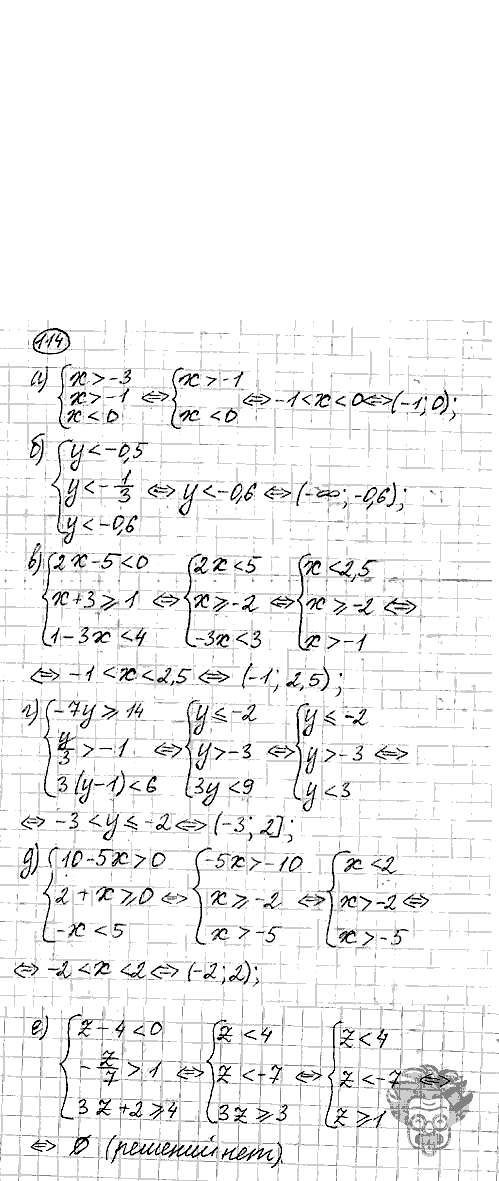 114
а) { x > -3 ; x > -1 ; x < 0 ⇔ { x > -1 ; x < 0 ⇔ -1 < x < 0 ⇔ (-1; 0);
б) { y < -0,5 ; y < -1/3 ; y < -0,6 ⇔ y < -0,6 ⇔ (-∞; -0,6);
в) { 2x - 5 < 0 ; x + 3 ⩾ 1 ; 1 - 3x < 4 ⇔ { 2x < 5 ; x ⩾ -2 ; -3x < 3 ⇔ { x < 2,5 ; x ⩾ -2 ; x > -1 ⇔
⇔ -1 < x < 2,5 ⇔ (-1; 2,5);
г) { -7y ⩾ 14 ; y/3 > -1 ; 3(y-1) < 6 ⇔ { y ⩽ -2 ; y > -3 ; 3y < 9 ⇔ { y ⩽ -2 ; y > -3 ; y < 3 ⇔
⇔ -3 < y ⩽ -2 ⇔ (-3; 2];
д) { 10 - 5x > 0 ; 2 + x ⩾ 0 ; -x < 5 ⇔ { -5x > -10 ; x ⩾ -2 ; x > -5 ⇔ { x < 2 ; x > -2 ; x > -5 ⇔
⇔ -2 < x < 2 ⇔ (-2; 2);
е) { z - 4 < 0 ; -z/7 > 1 ; 3z + 2 ⩾ 4 ⇔ { z < 4 ; z < -7 ; 3z ⩾ 3 ⇔ { z < 4 ; z < -7 ; z ⩾ 1 ⇔
⇔ Ø (решений нет).